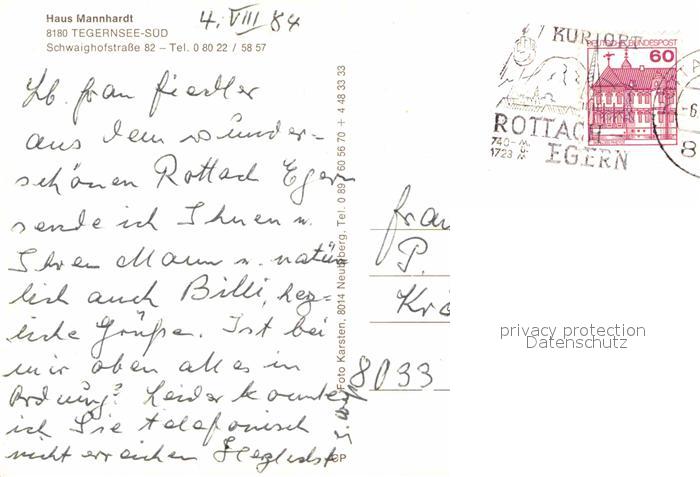 Haus Mannhardt
8180 TEGERNSEE-SÜD
Schwaighofstraße 82 – Tel. 0 80 22 / 58 57
4. VIII 84
Lb. Frau Fiedler
aus dem wunder-
schönen Rottach Egern
sende ich Ihnen u.
Ihrem Mann u. natür
lich auch Billi, herz-
liche Grüße. Ist bei
mir oben alles in
Ordnung? Leider konnte
ich Sie telefonisch
nicht erreichen Herzlichst
Foto Karsten, 8014 Neubiberg, Tel. 0 89 / 60 56 70 + 4 48 33 33
KURORT
ROTTACH-
EGERN
740-M.
1723 M
DEUTSCHE BUNDESPOST
60
Frau
P.
Krö
8033
privacy protection
Datenschutz